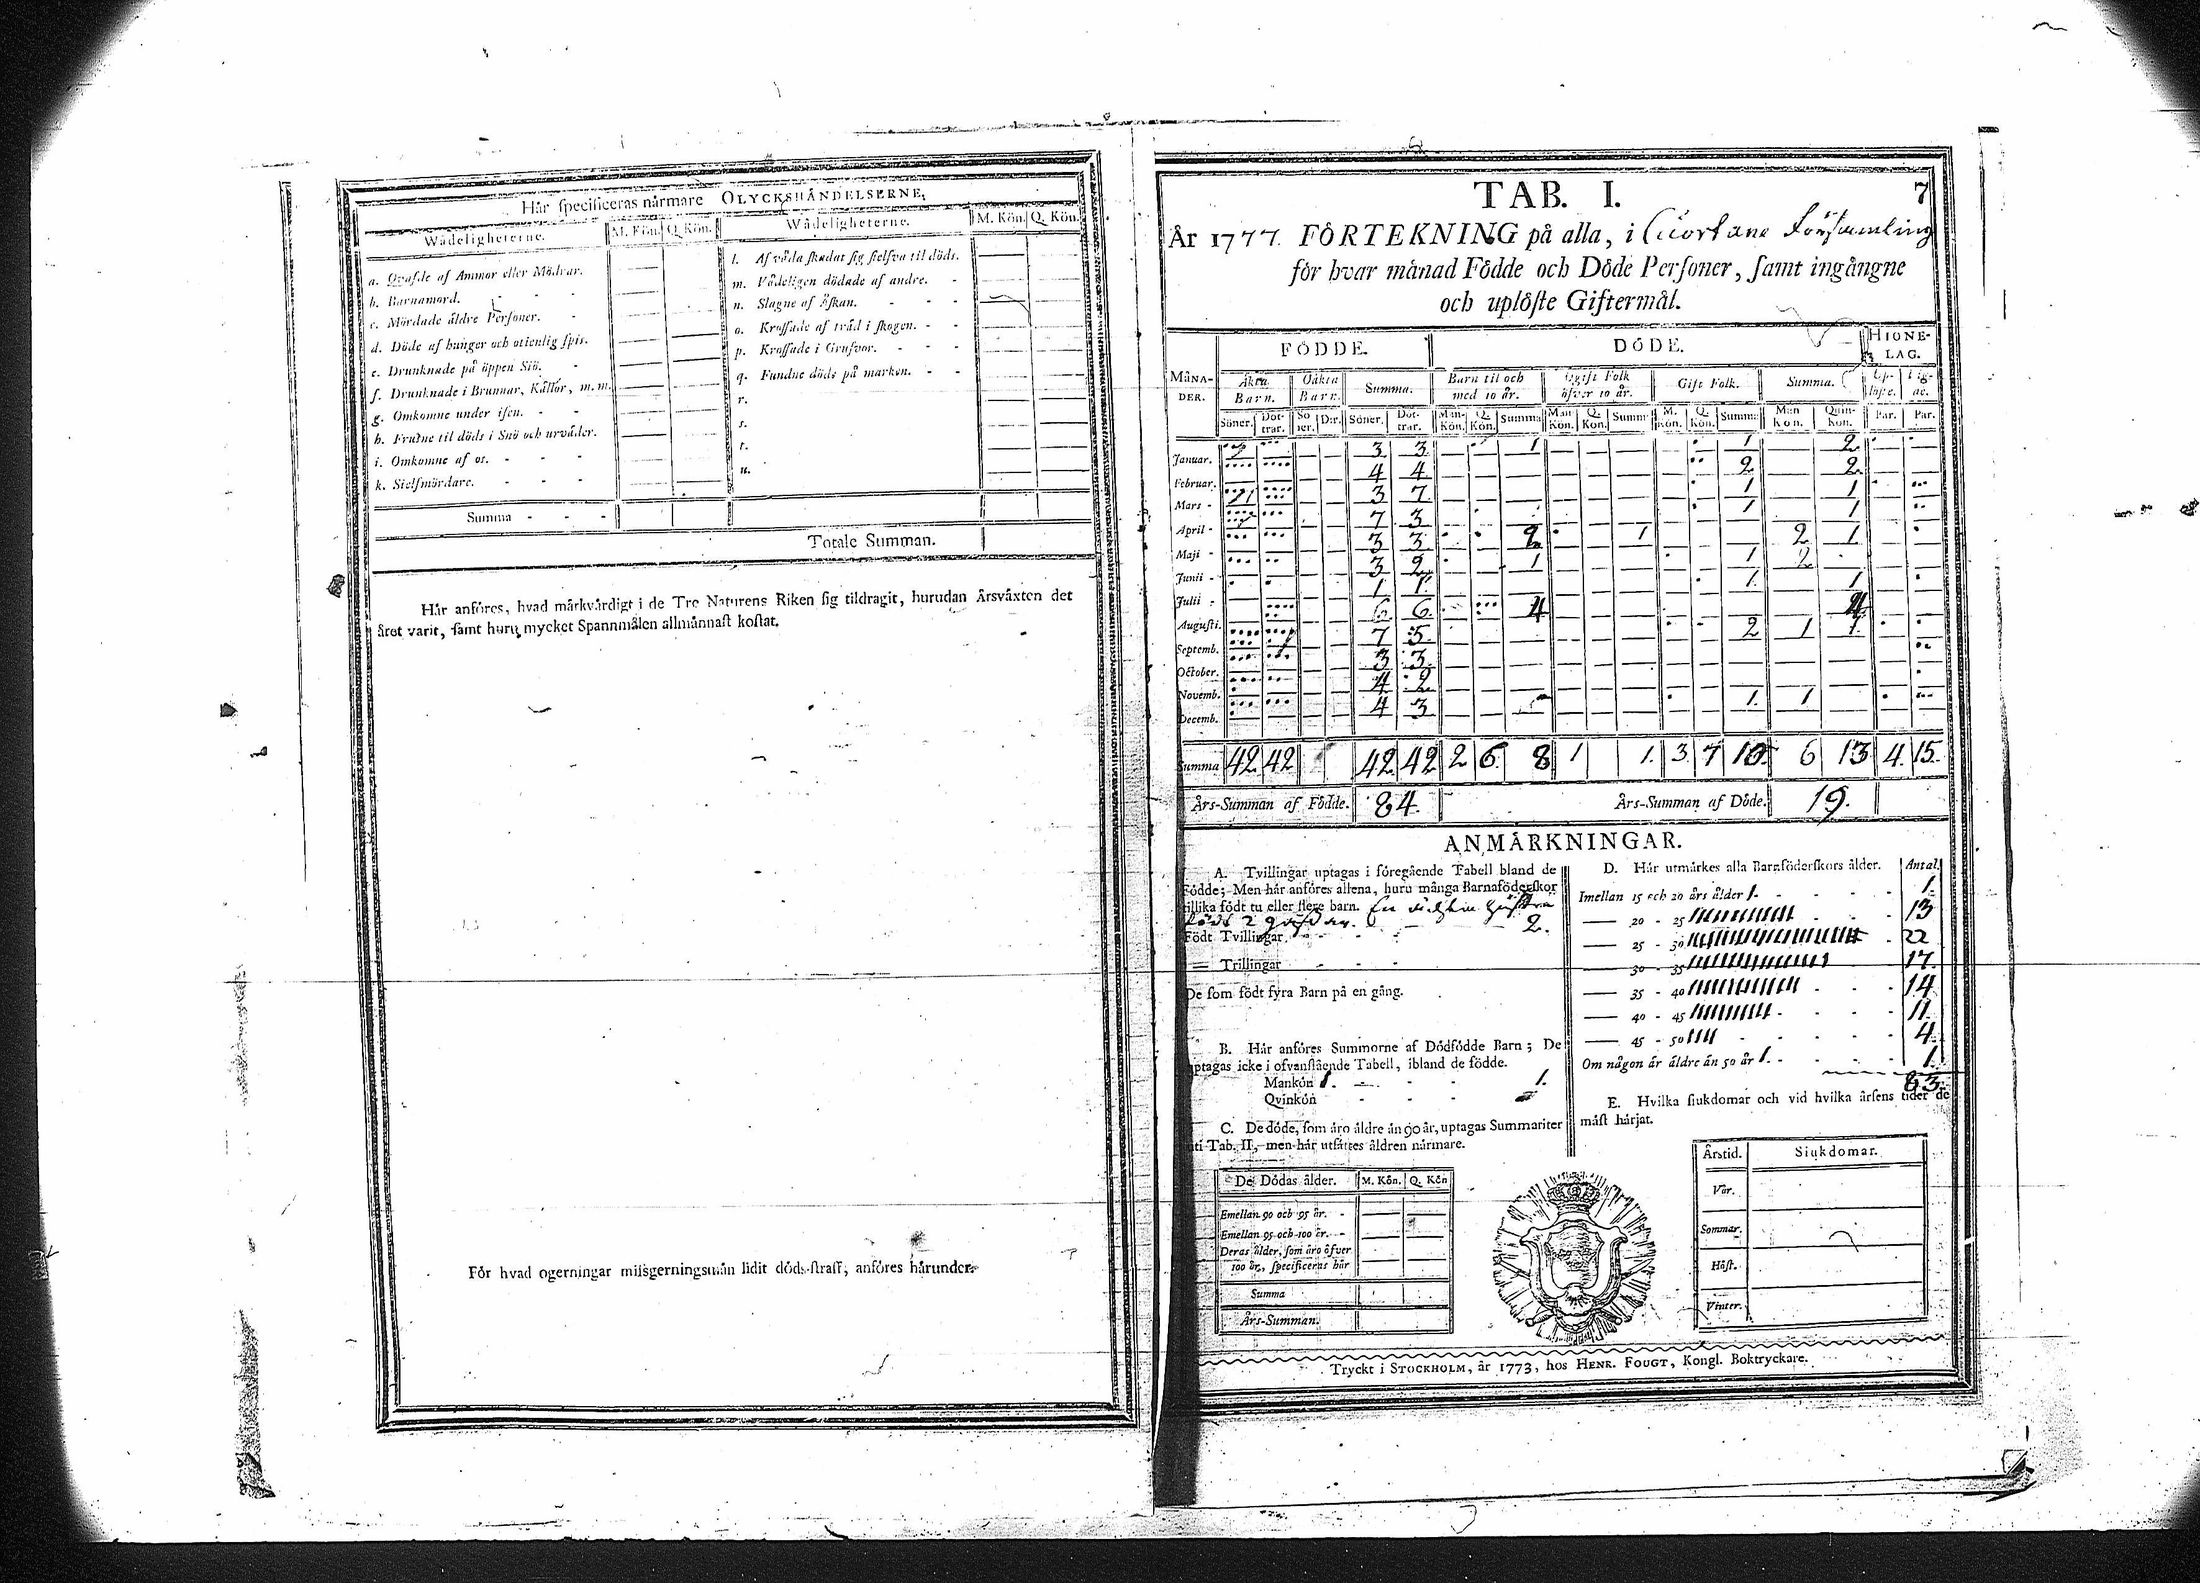 Här specificeras närmare OLYCKSHÄNDELSERNE,
Wådeligheterne. M. Kön. Q. Kön. Wådeligheterne. M. Kön. Q. Kön.
a. Qvafde af Ammor eller Mödrar.
b. Barnamord. - - -
c. Mördade äldre Personer. -
d. Döde af hunger och otienlig spis.
e. Drunknade på öppen Siö. -
f. Drunknade i Brunnar, Källor, m.m.
g. Omkomne under isen. - -
h. Frusne til döds i Snö och urväder.
i. Omkomne af os. - - -
k. Sielfmördare. - - -
l. Af våda skadat sig sielfva til döds.
m. Vådeligen dödade af andre. -
n. Slagne af Åskan. - - -
o. Krossade af träd i skogen. - -
p. Krossade i Grufvor. - - -
q. Fundne döds på marken. - -
r.
s.
t.
u.
Summa - - -
Totale Summan.
Här anföres, hvad märkvärdigt i de Tre Naturens Riken sig tildragit, hurudan Årsväxten det
året varit, samt huru mycket Spannmålen allmännast kostat.
För hvad ogerningar missgerningsmän lidit döds-straff, anföres härunder.
TAB. I. 7
År 1777. FÖRTEKNING på alla, i Cuortane Församling
för hvar månad Födde och Döde Personer, samt ingångne
och uplöste Giftermål.
MÅNA-DER. FÖDDE. DÖDE. HIONE-LAG.
Äkta Barn. Oäkta Barn. Summa. Barn til och med 10 år. Ogift Folk öfver 10 år. Gift Folk. Summa. Up-löste. Vig-de.
Söner. Döt-trar. Sö-ner. Dtr. Söner. Döt-trar. Man-Kön. Q. Kön. Summa Man Kön. Q. Kön. Summa M. Kön. Q. Kön. Summa Man Kön. Quin-Kön. Par. Par.
Januar. 3 3 1 1 2
Februar. 4 4 2 2
Mars - 3 7 1 1
April - 7 3 1 1
Maji - 3 3 2 1 2 1
Junii - 3 2 1 1 2
Julii - 1 1 1 1
Augusti. 6 6 4 4
Septemb. 7 5 2 1 1
October. 3 3
Novemb. 4 2
Decemb. 4 3 1 1
Summa 42 42 42 42 2 6 8 1 1. 3 7 10. 6 13 4. 15.
Års-Summan af Födde. 84. Års-Summan af Döde. 19.
ANMÄRKNINGAR.
A. Tvillingar uptagas i föregående Tabell bland de
Födde; Men här anföres allena, huru många Barnaföderskor
tillika födt tu eller flere barn. En
födt 2
Födt Tvillingar - - - 2.
— Trillingar - - -
De som födt fyra Barn på en gång.
B. Här anföres Summorne af Dödfödde Barn; De
uptagas icke i ofvanstående Tabell, ibland de födde.
Mankön 1. - - - 1.
Qvinkön - - -
C. De döde, som äro äldre än 90 år, uptagas Summariter
uti Tab. II, men här utsättes åldren närmare.
De Dödas ålder. M. Kön. Q. Kön
Emellan 90 och 95 år. -
Emellan 95 och 100 år. -
Deras ålder, som äro öfver
100 år, specificeras här
Summa
Års-Summan.
D. Här utmärkes alla Barnföderskors ålder. Antal.
Imellan 15 och 20 års ålder 1. - - - 1.
— 20 - 25 - - - 13
— 25 - 30 - 22
— 30 - 35 17.
— 35 - 40 - - - 14
— 40 - 45 - - - 11.
— 45 - 50 - - - 4.
Om någon är äldre än 50 år 1. - - - 1.
83.
E. Hvilka siukdomar och vid hvilka årsens tider de
mäst härjat.
Årstid. Siukdomar.
Vår.
Sommar.
Höst.
Vinter.
Tryckt i STOCKHOLM, år 1773, hos HENR. FOUGT, Kongl. Boktryckare.